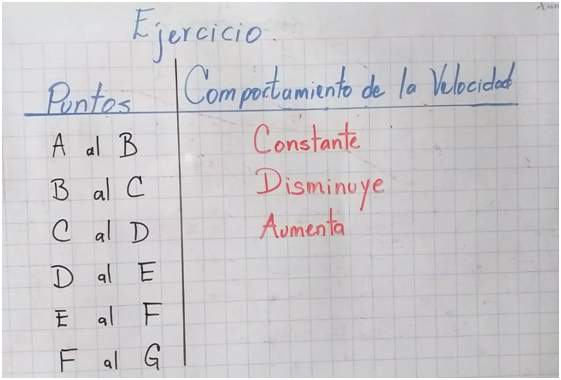 Ejercicio.
Puntos Comportamiento de la Velocidad
A al B Constante
B al C Disminuye
C al D Aumenta
D al E
E al F
F al G